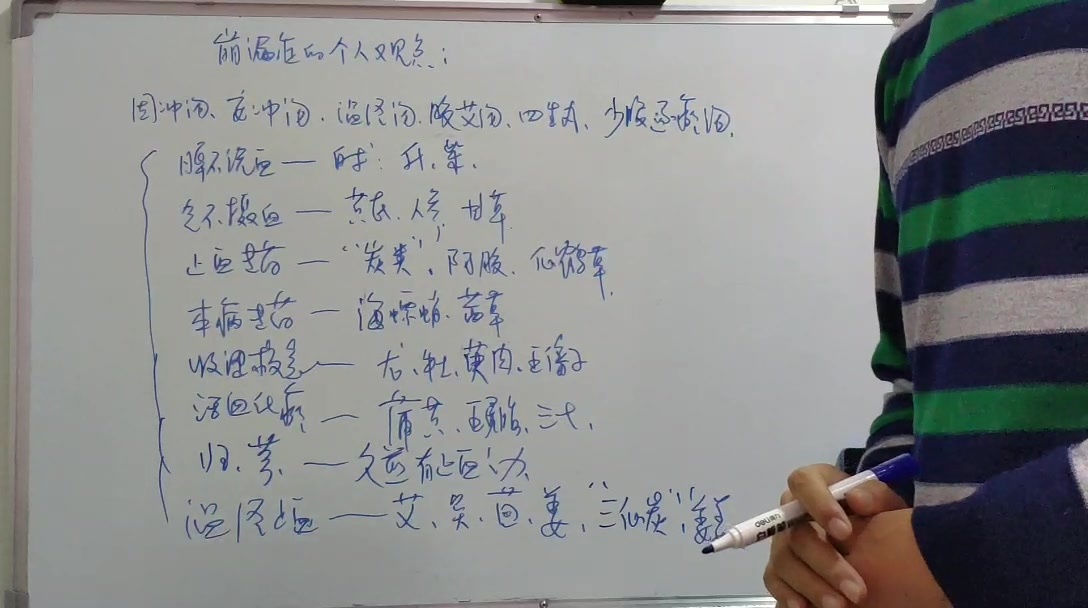 崩漏症的个人观点:
固冲汤、安冲汤、温经汤、胶艾汤、四生丸、少腹逐瘀汤、
脾不统血 — 升、柴、
气不摄血 — 黄芪、人参、甘草
止血药 — “炭类”、阿胶、仙鹤草、
本病药 — 海螵蛸、茜草
收涩救急 — 龙、牡、萸肉、五倍子
活血化瘀 — 蒲黄、五灵脂、三七、
归、芎、— 欠 有止血功
温经血 — 艾、吴、茴、姜、“三仙炭”
deli